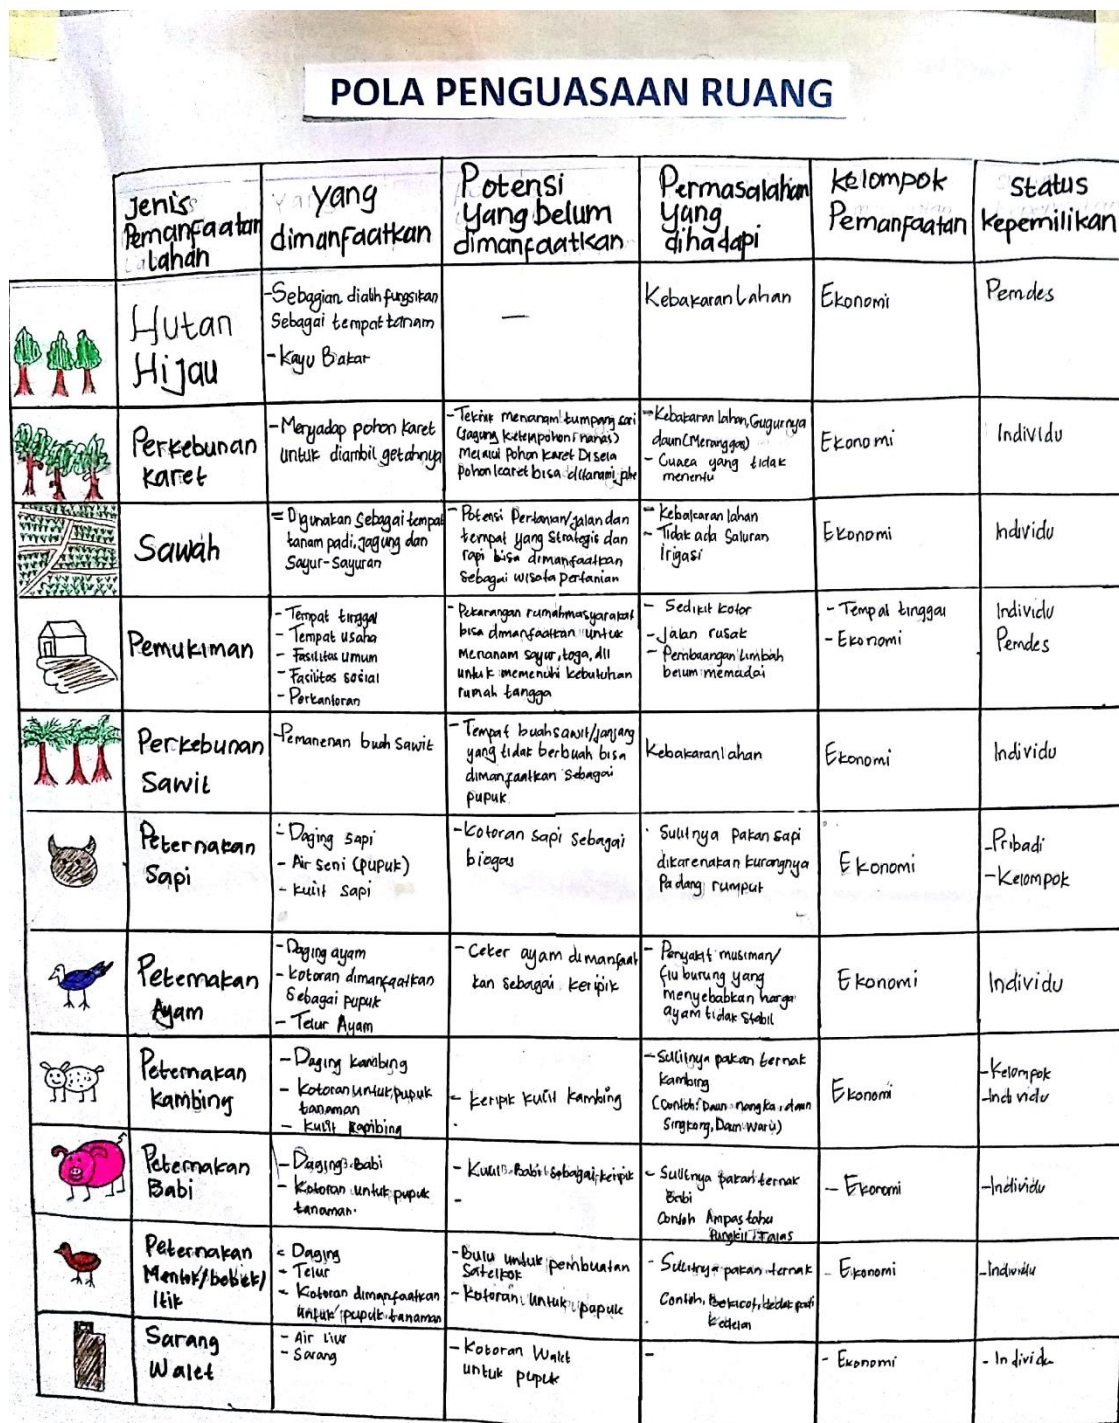 POLA PENGUASAAN RUANG
Jenis
Pemanfaatan
Lahan
yang
dimanfaatkan
Potensi
Yang belum
dimanfaatkan
Permasalahan
yang
dihadapi
Kelompok
Pemanfaatan
Status
Kepemilikan
Hutan
Hijau
-Sebagian dialih fungsikan
Sebagai tempat tanam
- Kayu Bakar
—
Kebakaran Lahan
Ekonomi
Pemdes
Perkebunan
Karet
- Menyadap pohon karet
untuk diambil getahnya
- Teknik menanam tumpang sari
(Jagung, Ketelapohon, nanas)
Melalui Pohon Karet Disela
Pohon karet bisa ditanami jahe
- Kebakaran lahan, Gugurnya
daun (Meranggas)
- Cuaca yang tidak
menentu
Ekonomi
Individu
Sawah
= Digunakan Sebagai tempat
tanam padi, jagung dan
Sayur-Sayuran
- Potensi Pertanian/jalan dan
tempat yang Strategis dan
rapi bisa dimanfaatkan
Sebagai wisata pertanian
- Kebakaran lahan
- Tidak ada Saluran
Irigasi
Ekonomi
Individu
Pemukiman
- Tempat tinggal
- Tempat usaha
- Fasilitas Umum
- Fasilitas sosial
- Perkantoran
- Pekarangan rumah masyarakat
bisa dimanfaatkan untuk
Menanam sayur, toga, dll
untuk memenuhi kebutuhan
rumah tangga
- Sedikit kotor
- Jalan rusak
- Pembuangan limbah
belum memadai
- Tempat tinggal
- Ekonomi
Individu
Pemdes
Perkebunan
Sawit
-Pemanenan buah Sawit
- Tempat buah sawit/janjang
yang tidak berbuah bisa
dimanfaatkan Sebagai
pupuk
Kebakaran lahan
Ekonomi
Individu
Peternakan
Sapi
- Daging sapi
- Air Seni (pupuk)
- Kulit Sapi
- Kotoran sapi sebagai
biogas
Sulitnya pakan sapi
dikarenakan kurangnya
Padang rumput
Ekonomi
-Pribadi
-Kelompok
Peternakan
Ayam
- Daging ayam
- Kotoran dimanfaatkan
Sebagai pupuk
- Telur Ayam
- Ceker ayam dimanfaat
kan sebagai keripik
- Penyakit musiman/
flu burung yang
menyebabkan harga
ayam tidak Stabil
Ekonomi
Individu
Peternakan
Kambing
- Daging Kambing
- Kotoran untuk pupuk
tanaman
- Kulit Kambing
- Keripik kulit kambing
- Sulitnya pakan ternak
Kambing
(Contoh: Daun nangka, daun
Singkong, Daun Waru)
Ekonomi
-Kelompok
-Individu
Peternakan
Babi
- Daging Babi
- Kotoran untuk pupuk
tanaman.
- Kulit Babi sebagai keripik
-
- Sulitnya pakan ternak
Babi
Contoh Ampas tahu
Bungkil, Talas
- Ekonomi
-Individu
Peternakan
Mentok/bebek/
Itik
- Daging
- Telur
- Kotoran dimanfaatkan
untuk pupuk tanaman
- Bulu untuk pembuatan
Satelkok
- Kotoran untuk pupuk
- Sulitnya pakan ternak
Contoh, Bekicot, dedak padi
Kedelai
- Ekonomi
-Individu
Sarang
Walet
- Air Liur
- Sarang
- Kotoran Walet
untuk pupuk
-
- Ekonomi
- Individu